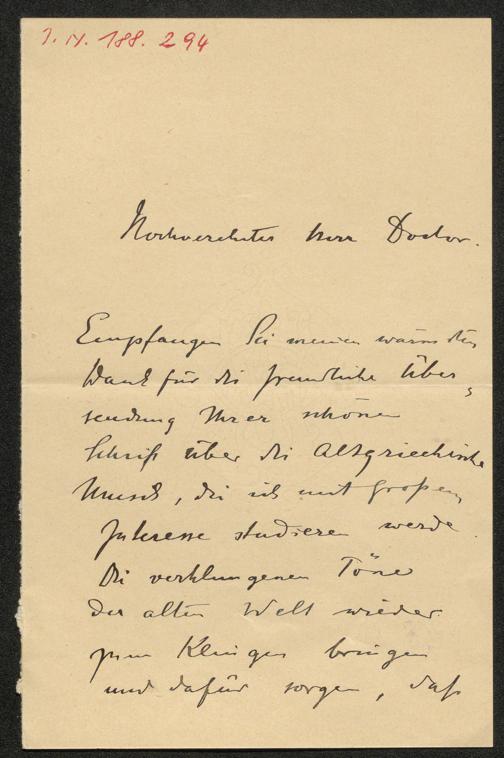 J. N. 188.294
Hochverehrter Herr Doctor.
Empfangen Sie meinen wärmsten
Dank für die freundliche Über-
sendung Ihrer schönen
Schrift über die Altgriechische
Musik, die ich mit großem
Interesse studieren werde.
Die verklungenen Töne
der alten Welt wieder
zum Klingen bringen
und dafür sorgen, daß